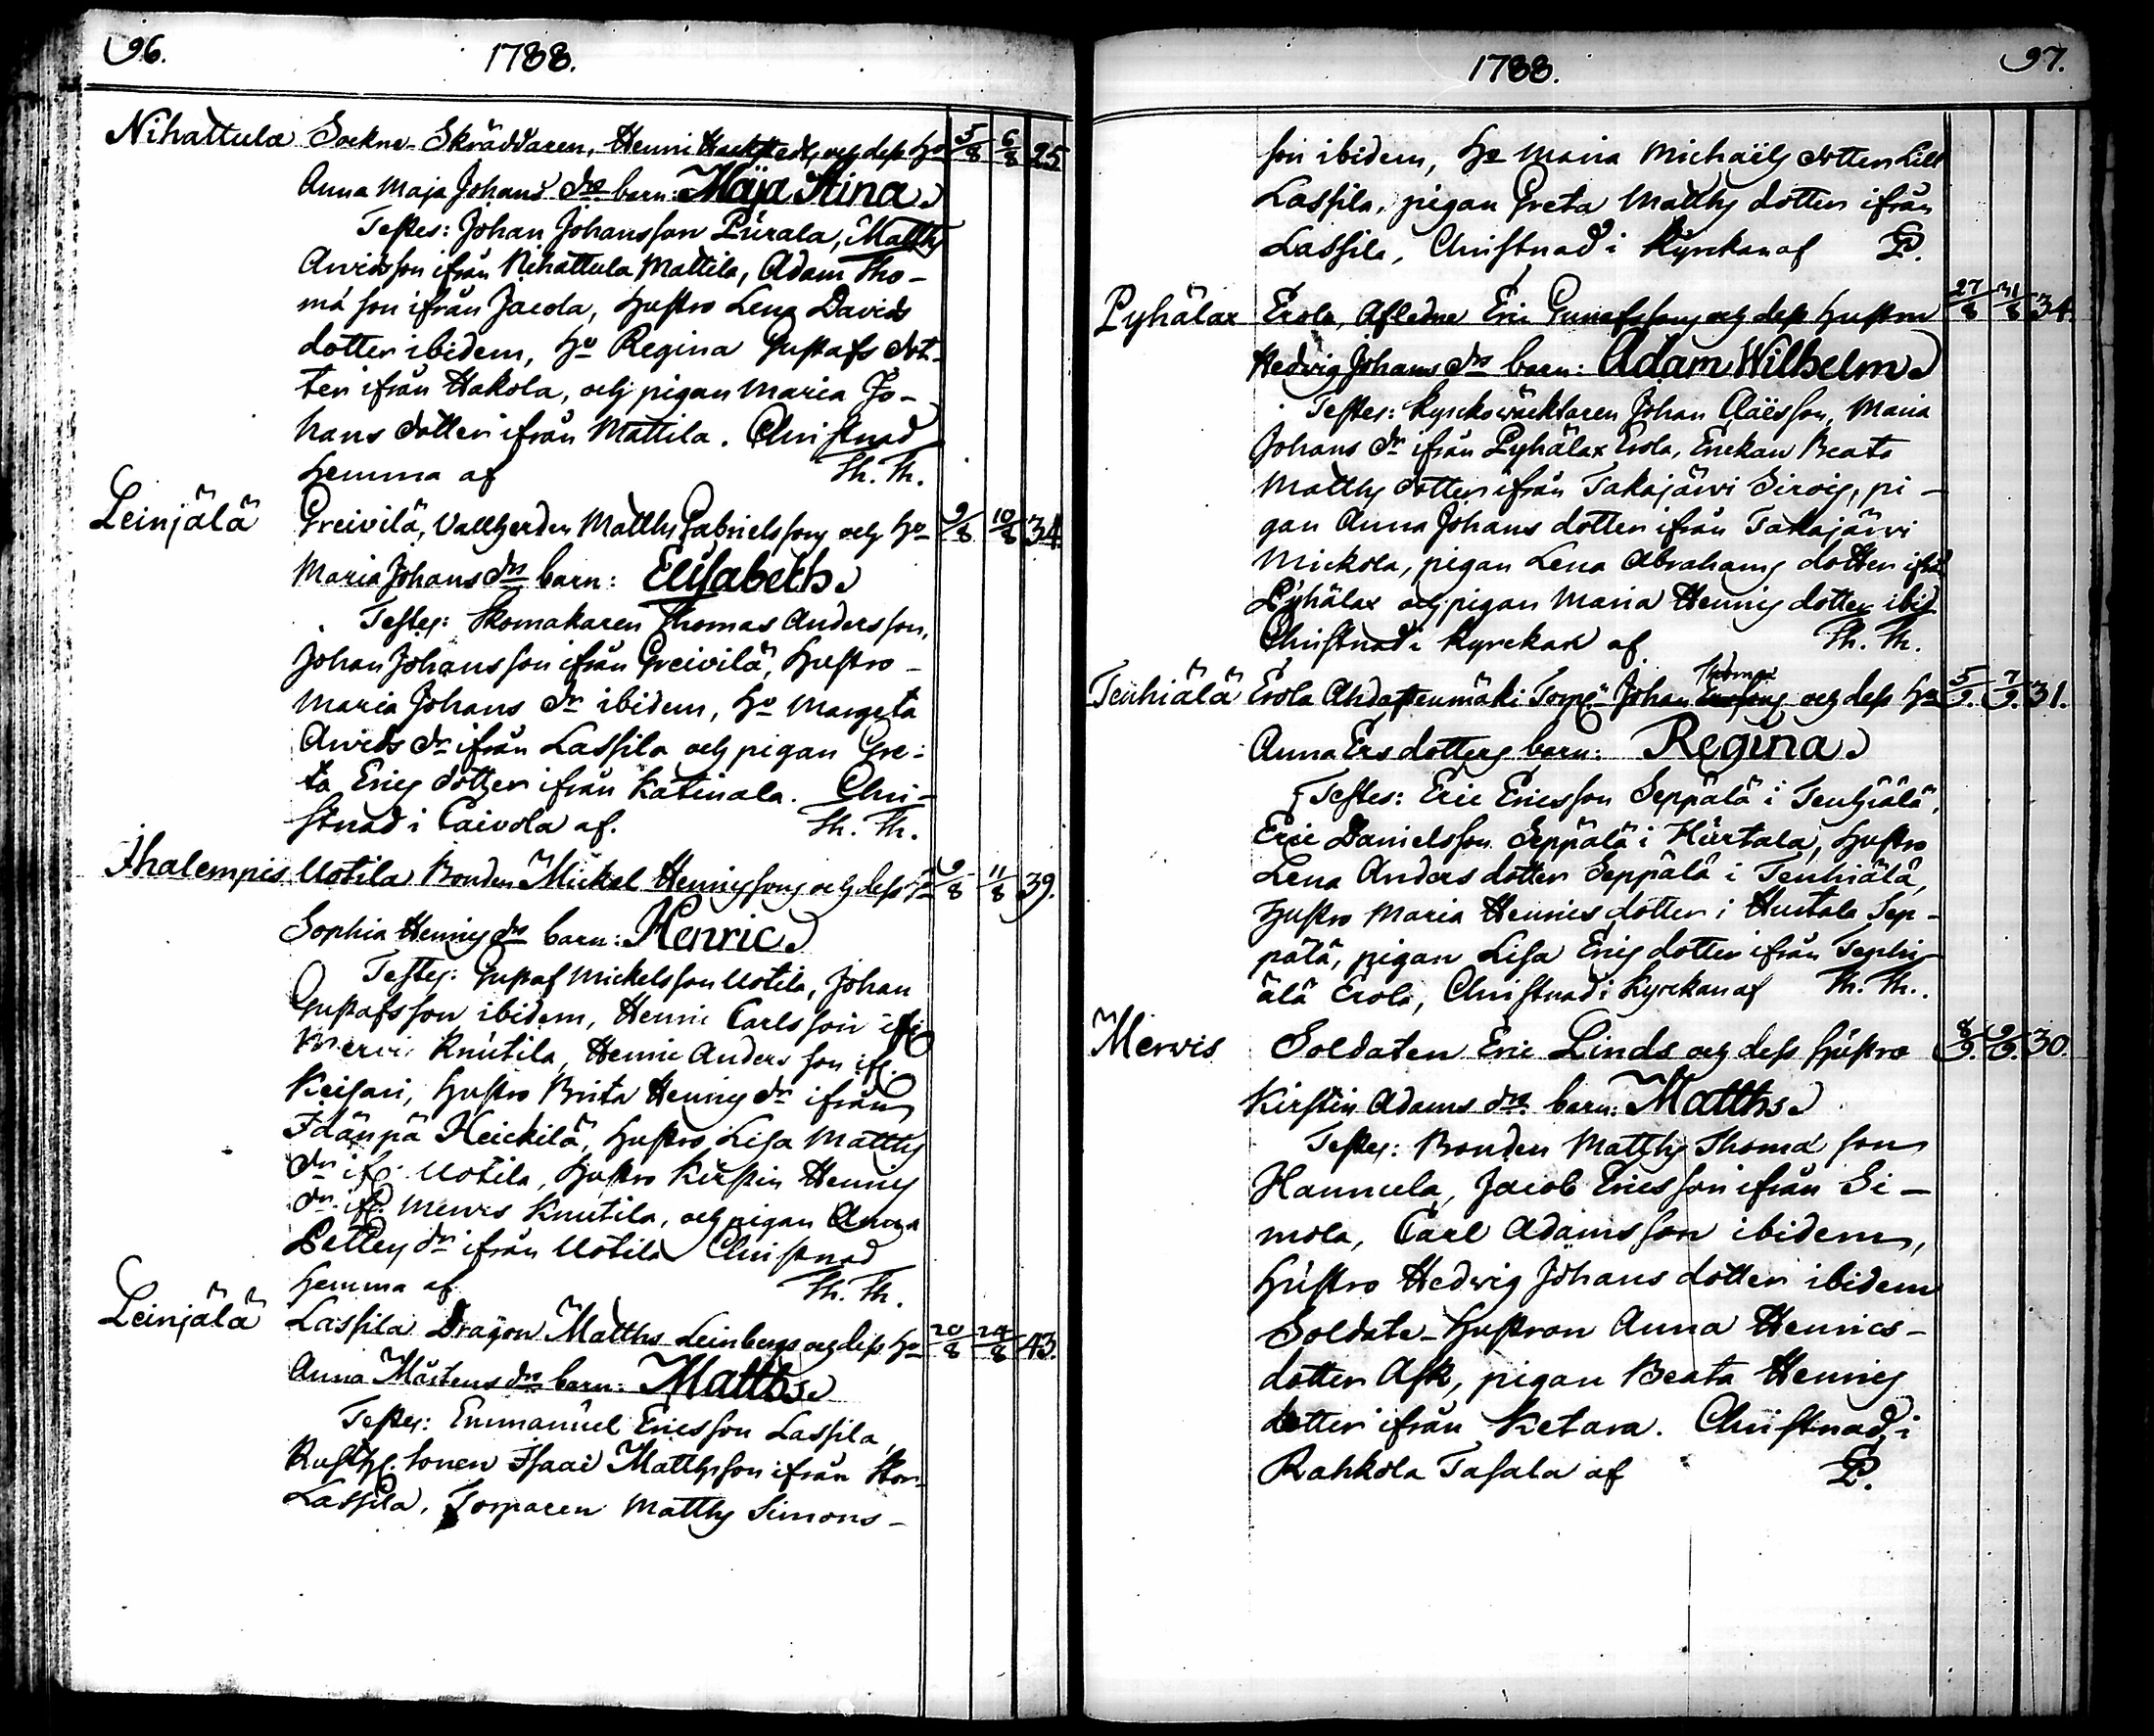 96. 1788.
Nihattula Sockne-Skräddaren, Henric Hackstedts och dess Ho 5/8 6/8 25
Anna Maja Johans drs barn: Maja Stina
Testes: Johan Johansson Pürala, Matths
Arvidsson ifrån Nihattula Mattila, Adam Tho-
mæ son ifrån Jacola, Hustro Lena Davids
dotter ibidem, Ho Regina Gustafs dot-
ter ifrån Hakola, och pigan Maria Jo-
hans dotter ifrån Mattila. Christnad
hemma af Th. Th.
Leinjälä Greivilä, Vallherden Matths Gabrielssons och Ho 9/8 10/8 34
Maria Johans drs barn: Elisabeth
Testes: Skomakaren Thomas Andersson,
Johan Johansson ifrån Greivilä, Hustro
Maria Johans dr ibidem, Ho Margeta
Arvids dr ifrån Lassila och pigan Gre-
ta Erics dotter ifrån Katinala. Chri-
stnad i Caivola af. Th. Th.
Ihalempis Uotila Bonden Mickel Henricssons och dess Ho 9/8 11/8 39.
Sophia Henrics drs barn: Henric
Testes: Gustaf Mickelsson Uotila, Johan
Gustafsson ibidem, Henric Carlsson ifr.
Mervi Knutila, Henric Andersson ifr.
Keisari, Hustro Brita Henrics dr ifrån
Idänpä Heickilä, Hustro Lisa Matths
dr ifr. Uotila, Hustro Kirstin Henrics
dr. ifr. Mervis Knutila, och pigan Anna
Petters dr ifrån Uotila Christnad
hemma af Th. Th.
Leinjälä Lassila Dragon Matths Leinbergs och dess Ho 20/8 24/8 43.
Anna Mårtens drs barn: Matths
Testes: Emmanuel Ericsson Lassila,
Rusth. Sonen Isaac Matthsson ifrån Stor-
Lassila, Torparen Matths Simons-
1788. 97.
son ibidem, Ho Maria Michaëls dotter Lill
Lassila, pigan Greta Matths dotter ifrån
Lassila, Christnad i Kyrckan af P.
Pyhälax Erola, Afledne Eric Gustafssons och dess Hustru 27/8 31/8 34.
Hedvig Johans drs barn: Adam Wilhelm
Testes: Kyrckowäcktaren Johan Claësson, Maria
Johans dr ifrån Pyhälax Erola, Enckan Beata
Matths dotter ifrån Takajärvi Sirois, pi-
gan Anna Johans dotter ifrån Takajärvi
Mickola, pigan Lena Abrahams dotter ifrån
Pyhälax och pigan Maria Henrics dotter ibid.
Christnad i Kyrckan af Th. Th.
Thomæ
Tenhiälä Erola Ahdastenmäki Torp. Johan och dess Ho 5/9. 7/9. 31.
Anna Ers dotters barn: Regina
Testes: Eric Ericsson Seppälä i Tenhiälä,
Eric Danielsson Seppälä i Hürtala, Hustro
Lena Anders dotter Seppälä i Tenhiälä,
Hustro Maria Henrics dotter i Hurtala Sep-
pälä, pigan Lisa Erics dotter ifrån Tenhi-
älä Erola, Christnad i Kyrckan af Th. Th.
Mervis Soldaten Eric Linds och dess Hustro 8/9. 9/9. 30.
Kirstin Adams drs barn: Matths
Testes: Bonden Matths Thomæ son
Hannula, Jacob Ericsson ifrån Si-
mola, Carl Adamsson ibidem,
Hustro Hedvig Johans dotter ibidem
Soldate-Hustron Anna Henrics-
dotter Ask, pigan Beata Henrics
dotter ifrån Ketara. Christnad i
Rahkola Tasala af P.